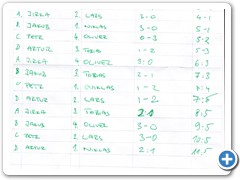 A. JIRKA 2. LARS 3-0 4-1
B. JAKUB 1. NIKLAS 5-1
C PETR 4 OLIVER 0-3 5-2
D ARTUR 3 TOBIAS 1-2 5-3
A JIRKA 4 OLIVER 3:0 6:3
B JAKUB 3 TOBIAS 2-1 7:3
C PETR 1. NIKLAS 1-2 7:4
D ARTUR 2 LARS 1-2 7:5
A JIRKA 3 TOBIAS 2:1 8:5
B JAKUB 4 OLIVER 3-0 9:5
C PETR 2 LARS 3-0 10:5
D ARTUR 1. NIKLAS 2:1 11:5